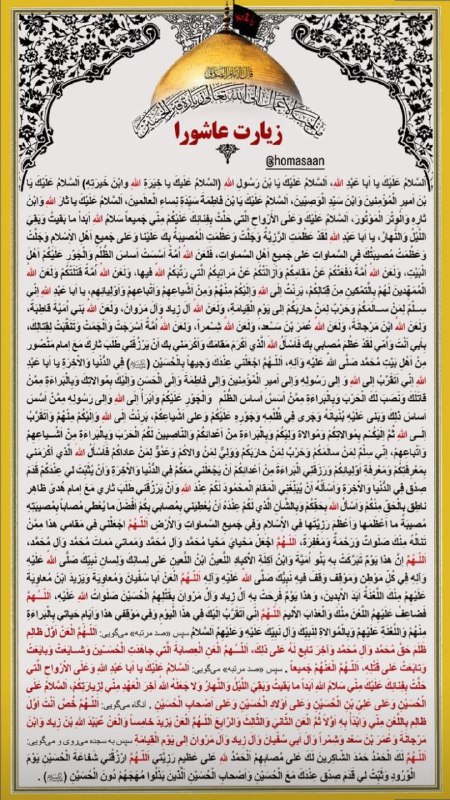 قال الإمام الصادق
زیارت عاشورا
@homasaan
اَلسَّلامُ عَلَيْكَ يا اَبا عَبْدِ اللهِ، اَلسَّلامُ عَلَيْكَ يَا بْنَ رَسُولِ اللهِ (السَّلامُ عَلَيكَ يا خِيَرَةِ اللهِ وابْنَ خَيرَتِهِ) اَلسَّلامُ عَلَيْكَ يَا
بْنَ اَميرِ الْمُؤْمِنينَ وَابْنَ سَيِّدِ الْوَصِيّينَ، اَلسَّلامُ عَلَيْكَ يَا بْنَ فاطِمَةَ سَيِّدَةِ نِساءِ الْعالَمينَ، اَلسَّلامُ عَلَيْكَ يا ثارَ اللهِ وَابْنَ
ثارِهِ وَالْوِتْرَ الْمَوْتُورَ، اَلسَّلامُ عَلَيْكَ وَعَلَى الْاَرْواحِ الَّتي حَلَّتْ بِفِنائِكَ عَلَيْكُمْ مِنّي جَميعاً سَلامُ اللهِ اَبَداً ما بَقيتُ وَبَقِيَ
اللَّيْلُ وَالنَّهارُ، يا اَبا عَبْدِ اللهِ لَقَدْ عَظُمَتِ الرَّزِيَّةُ وَجَلَّتْ وَعَظُمَتِ الْمُصيبَةُ بِكَ عَلَيْنا وَعَلى جَميعِ اَهْلِ الْاِسْلامِ وَجَلَّتْ
وَعَظُمَتْ مُصيبَتُكَ فِي السَّماواتِ عَلى جَميعِ اَهْلِ السَّماواتِ، فَلَعَنَ اللهُ اُمَّةً اَسَّسَتْ اَساسَ الظُّلْمِ وَالْجَوْرِ عَلَيْكُمْ اَهْلَ
الْبَيْتِ، وَلَعَنَ اللهُ اُمَّةً دَفَعَتْكُمْ عَنْ مَقامِكُمْ وَاَزالَتْكُمْ عَنْ مَراتِبِكُمُ الَّتي رَتَّبَكُمُ اللهُ فيها، وَلَعَنَ اللهُ اُمَّةً قَتَلَتْكُمْ وَلَعَنَ اللهُ
الْمُمَهِّدينَ لَهُمْ بِالتَّمْكينِ مِنْ قِتالِكُمْ، بَرِئْتُ اِلَى اللهِ وَاِلَيْكُمْ مِنْهُمْ وَمِنْ اَشْياعِهِمْ وَاَتْباعِهِمْ وَاَوْلِيائِهِمْ، يا اَبا عَبْدِ اللهِ اِنّي
سِلْمٌ لِمَنْ سالَمَكُمْ وَحَرْبٌ لِمَنْ حارَبَكُمْ اِلى يَوْمِ الْقِيامَةِ، وَلَعَنَ اللهُ آلَ زِيادٍ وَآلَ مَرْوانَ، وَلَعَنَ اللهُ بَني اُمَيَّةَ قاطِبَةً،
وَلَعَنَ اللهُ ابْنَ مَرْجانَةَ، وَلَعَنَ اللهُ عُمَرَ بْنَ سَعْدٍ، وَلَعَنَ اللهُ شِمْراً، وَلَعَنَ اللهُ اُمَّةً اَسْرَجَتْ وَاَلْجَمَتْ وَتَنَقَّبَتْ لِقِتالِكَ،
بِاَبي اَنْتَ وَاُمّي لَقَدْ عَظُمَ مُصابي بِكَ فَاَسْأَلُ اللهَ الَّذي اَكْرَمَ مَقامَكَ وَاَكْرَمَني بِكَ اَنْ يَرْزُقَني طَلَبَ ثارِكَ مَعَ اِمامٍ مَنْصُورٍ
مِنْ اَهْلِ بَيْتِ مُحَمَّدٍ صَلَّى اللهُ عَلَيْهِ وَآلِهِ، اَللّهُمَّ اجْعَلْني عِنْدَكَ وَجيهاً بِالْحُسَيْنِ فِي الدُّنْيا وَالْاٰخِرَةِ يا اَبا عَبْدِ
اللهِ اِنّي اَتَقَرَّبُ اِلى اللهِ وَ اِلى رَسُولِهِ وَاِلى اَميرِ الْمُؤْمِنينَ وَاِلى فاطِمَةَ وَاِلَى الْحَسَنِ وَاِلَيْكَ بِمُوالاتِكَ وَبِالْبَراءَةِ مِمَّنْ
قاتَلَكَ وَنَصَبَ لَكَ الْحَرْبَ وَبِالْبَراءَةِ مِمَّنْ اَسَّسَ اَساسَ الظُّلْمِ وَالْجَوْرِ عَلَيْكُمْ وَاَبْرَأُ اِلَى اللهِ وَاِلى رَسُولِهِ مِمَّنْ اَسَّسَ
اَساسَ ذلِكَ وَبَنى عَلَيْهِ بُنْيانَهُ وَجَرى في ظُلْمِهِ وَجَوْرِهِ عَلَيْكُمْ وَعَلى اَشْياعِكُمْ، بَرِئْتُ اِلَى اللهِ وَاِلَيْكُمْ مِنْهُمْ وَاَتَقَرَّبُ
اِلَى اللهِ ثُمَّ اِلَيْكُمْ بِمُوالاتِكُمْ وَمُوالاةِ وَلِيِّكُمْ وَبِالْبَراءَةِ مِنْ اَعْدائِكُمْ وَالنّاصِبينَ لَكُمُ الْحَرْبَ وَبِالْبَراءَةِ مِنْ اَشْياعِهِمْ
وَاَتْباعِهِمْ، اِنّي سِلْمٌ لِمَنْ سالَمَكُمْ وَحَرْبٌ لِمَنْ حارَبَكُمْ وَوَلِيٌّ لِمَنْ والاكُمْ وَعَدُوٌّ لِمَنْ عاداكُمْ فَاَسْأَلُ اللهَ الَّذي اَكْرَمَني
بِمَعْرِفَتِكُمْ وَمَعْرِفَةِ اَوْلِيائِكُمْ وَرَزَقَنِي الْبَراءَةَ مِنْ اَعْدائِكُمْ اَنْ يَجْعَلَني مَعَكُمْ فِي الدُّنْيا وَالْاٰخِرَةِ وَاَنْ يُثَبِّتَ لي عِنْدَكُمْ قَدَمَ
صِدْقٍ فِي الدُّنْيا وَالْاٰخِرَةِ وَاَسْأَلُهُ اَنْ يُبَلِّغَنِي الْمَقامَ الْمَحْمُودَ لَكُمْ عِنْدَ اللهِ وَاَنْ يَرْزُقَني طَلَبَ ثاري مَعَ اِمامٍ هُدىً ظاهِرٍ
ناطِقٍ بِالْحَقِّ مِنْكُمْ وَاَسْأَلُ اللهَ بِحَقِّكُمْ وَبِالشَّأْنِ الَّذي لَكُمْ عِنْدَهُ اَنْ يُعْطِيَني بِمُصابي بِكُمْ اَفْضَلَ ما يُعْطي مُصاباً بِمُصيبَتِهِ
مُصيبَةً ما اَعْظَمَها وَاَعْظَمَ رَزِيَّتَها فِي الْاِسْلامِ وَفي جَميعِ السَّماواتِ وَالْاَرْضِ اَللّهُمَّ اجْعَلْني في مَقامي هذا مِمَّنْ
تَنالُهُ مِنْكَ صَلَواتٌ وَرَحْمَةٌ وَمَغْفِرَةٌ، اَللّهُمَّ اجْعَلْ مَحْيايَ مَحْيا مُحَمَّدٍ وَآلِ مُحَمَّدٍ وَمَماتي مَماتَ مُحَمَّدٍ وَآلِ مُحَمَّدٍ،
اَللّهُمَّ اِنَّ هذا يَوْمٌ تَبَرَّكَتْ بِهِ بَنُو اُمَيَّةَ وَابْنُ آكِلَةِ الْاَكْبادِ اللَّعينُ ابْنُ اللَّعينِ عَلى لِسانِكَ وَلِسانِ نَبِيِّكَ صَلَّى اللهُ عَلَيْهِ
وَآلِهِ في كُلِّ مَوْطِنٍ وَمَوْقِفٍ وَقَفَ فيهِ نَبِيُّكَ صَلَّى اللهُ عَلَيْهِ وَآلِهِ اَللّهُمَّ الْعَنْ اَبا سُفْيانَ وَمُعاوِيَةَ وَيَزيدَ ابْنَ مُعاوِيَةَ
عَلَيْهِمْ مِنْكَ اللَّعْنَةُ اَبَدَ الْاٰبِدينَ، وَهذا يَوْمٌ فَرِحَتْ بِهِ آلُ زِيادٍ وَآلُ مَرْوانَ بِقَتْلِهِمُ الْحُسَيْنَ صَلَواتُ اللهِ عَلَيْهِ، اَللّهُمَّ
فَضاعِفْ عَلَيْهِمُ اللَّعْنَ مِنْكَ وَالْعَذابَ الْاَليمَ اَللّهُمَّ اِنّي اَتَقَرَّبُ اِلَيْكَ في هذَا الْيَوْمِ وَفي مَوْقِفي هذا وَاَيّامِ حَياتي بِالْبَراءَةِ
مِنْهُمْ وَاللَّعْنَةِ عَلَيْهِمْ وَبِالْمُوالاةِ لِنَبِيِّكَ وَآلِ نَبِيِّكَ عَلَيْهِ وَعَلَيْهِمُ السَّلامُ سپس «صد مرتبه» می‌گویی: اَللّهُمَّ الْعَنْ اَوَّلَ ظالِمٍ
ظَلَمَ حَقَّ مُحَمَّدٍ وَآلِ مُحَمَّدٍ وَآخِرَ تابِعٍ لَهُ عَلى ذلِكَ، اَللّهُمَّ الْعَنِ الْعِصابَةَ الَّتي جاهَدَتِ الْحُسَيْنَ وَشايَعَتْ وَبايَعَتْ
وَتابَعَتْ عَلى قَتْلِهِ، اَللّهُمَّ الْعَنْهُمْ جَميعاً . سپس «صد مرتبه» می‌گویی: اَلسَّلامُ عَلَيْكَ يا اَبا عَبْدِ اللهِ وَعَلَى الْاَرْواحِ الَّتي
حَلَّتْ بِفِنائِكَ عَلَيْكَ مِنّي سَلامُ اللهِ اَبَداً ما بَقيتُ وَبَقِيَ اللَّيْلُ وَالنَّهارُ وَلا جَعَلَهُ اللهُ آخِرَ الْعَهْدِ مِنّي لِزِيارَتِكُمْ، اَلسَّلامُ عَلَى
الْحُسَيْنِ وَعَلى عَلِيِّ بْنِ الْحُسَيْنِ وَعَلى اَوْلادِ الْحُسَيْنِ وَعَلى اَصْحابِ الْحُسَيْنِ . آنگاه می‌گویی: اَللّهُمَّ خُصَّ اَنْتَ اَوَّلَ
ظالِمٍ بِاللَّعْنِ مِنّي وَابْدَأْ بِهِ اَوَّلاً ثُمَّ الْعَنِ الثّاني وَالثّالِثَ وَالرّابِعَ اَللّهُمَّ الْعَنْ يَزيدَ خامِساً وَالْعَنْ عُبَيْدَ اللهِ بْنَ زِيادٍ وَابْنَ
مَرْجانَةَ وَعُمَرَ بْنَ سَعْدٍ وَشِمْراً وَآلَ اَبي سُفْيانَ وَآلَ زِيادٍ وَآلَ مَرْوانَ اِلى يَوْمِ الْقِيامَةِ سپس به سجده می‌روی و می‌گویی:
اَللّهُمَّ لَكَ الْحَمْدُ حَمْدَ الشّاكِرينَ لَكَ عَلى مُصابِهِمْ اَلْحَمْدُ للهِ عَلى عَظيمِ رَزِيَّتي اَللّهُمَّ ارْزُقْني شَفاعَةَ الْحُسَيْنِ يَوْمَ
الْوُرُودِ وَثَبِّتْ لي قَدَمَ صِدْقٍ عِنْدَكَ مَعَ الْحُسَيْنِ وَاَصْحابِ الْحُسَيْنِ الَّذينَ بَذَلُوا مُهَجَهُمْ دُونَ الْحُسَيْنِ .